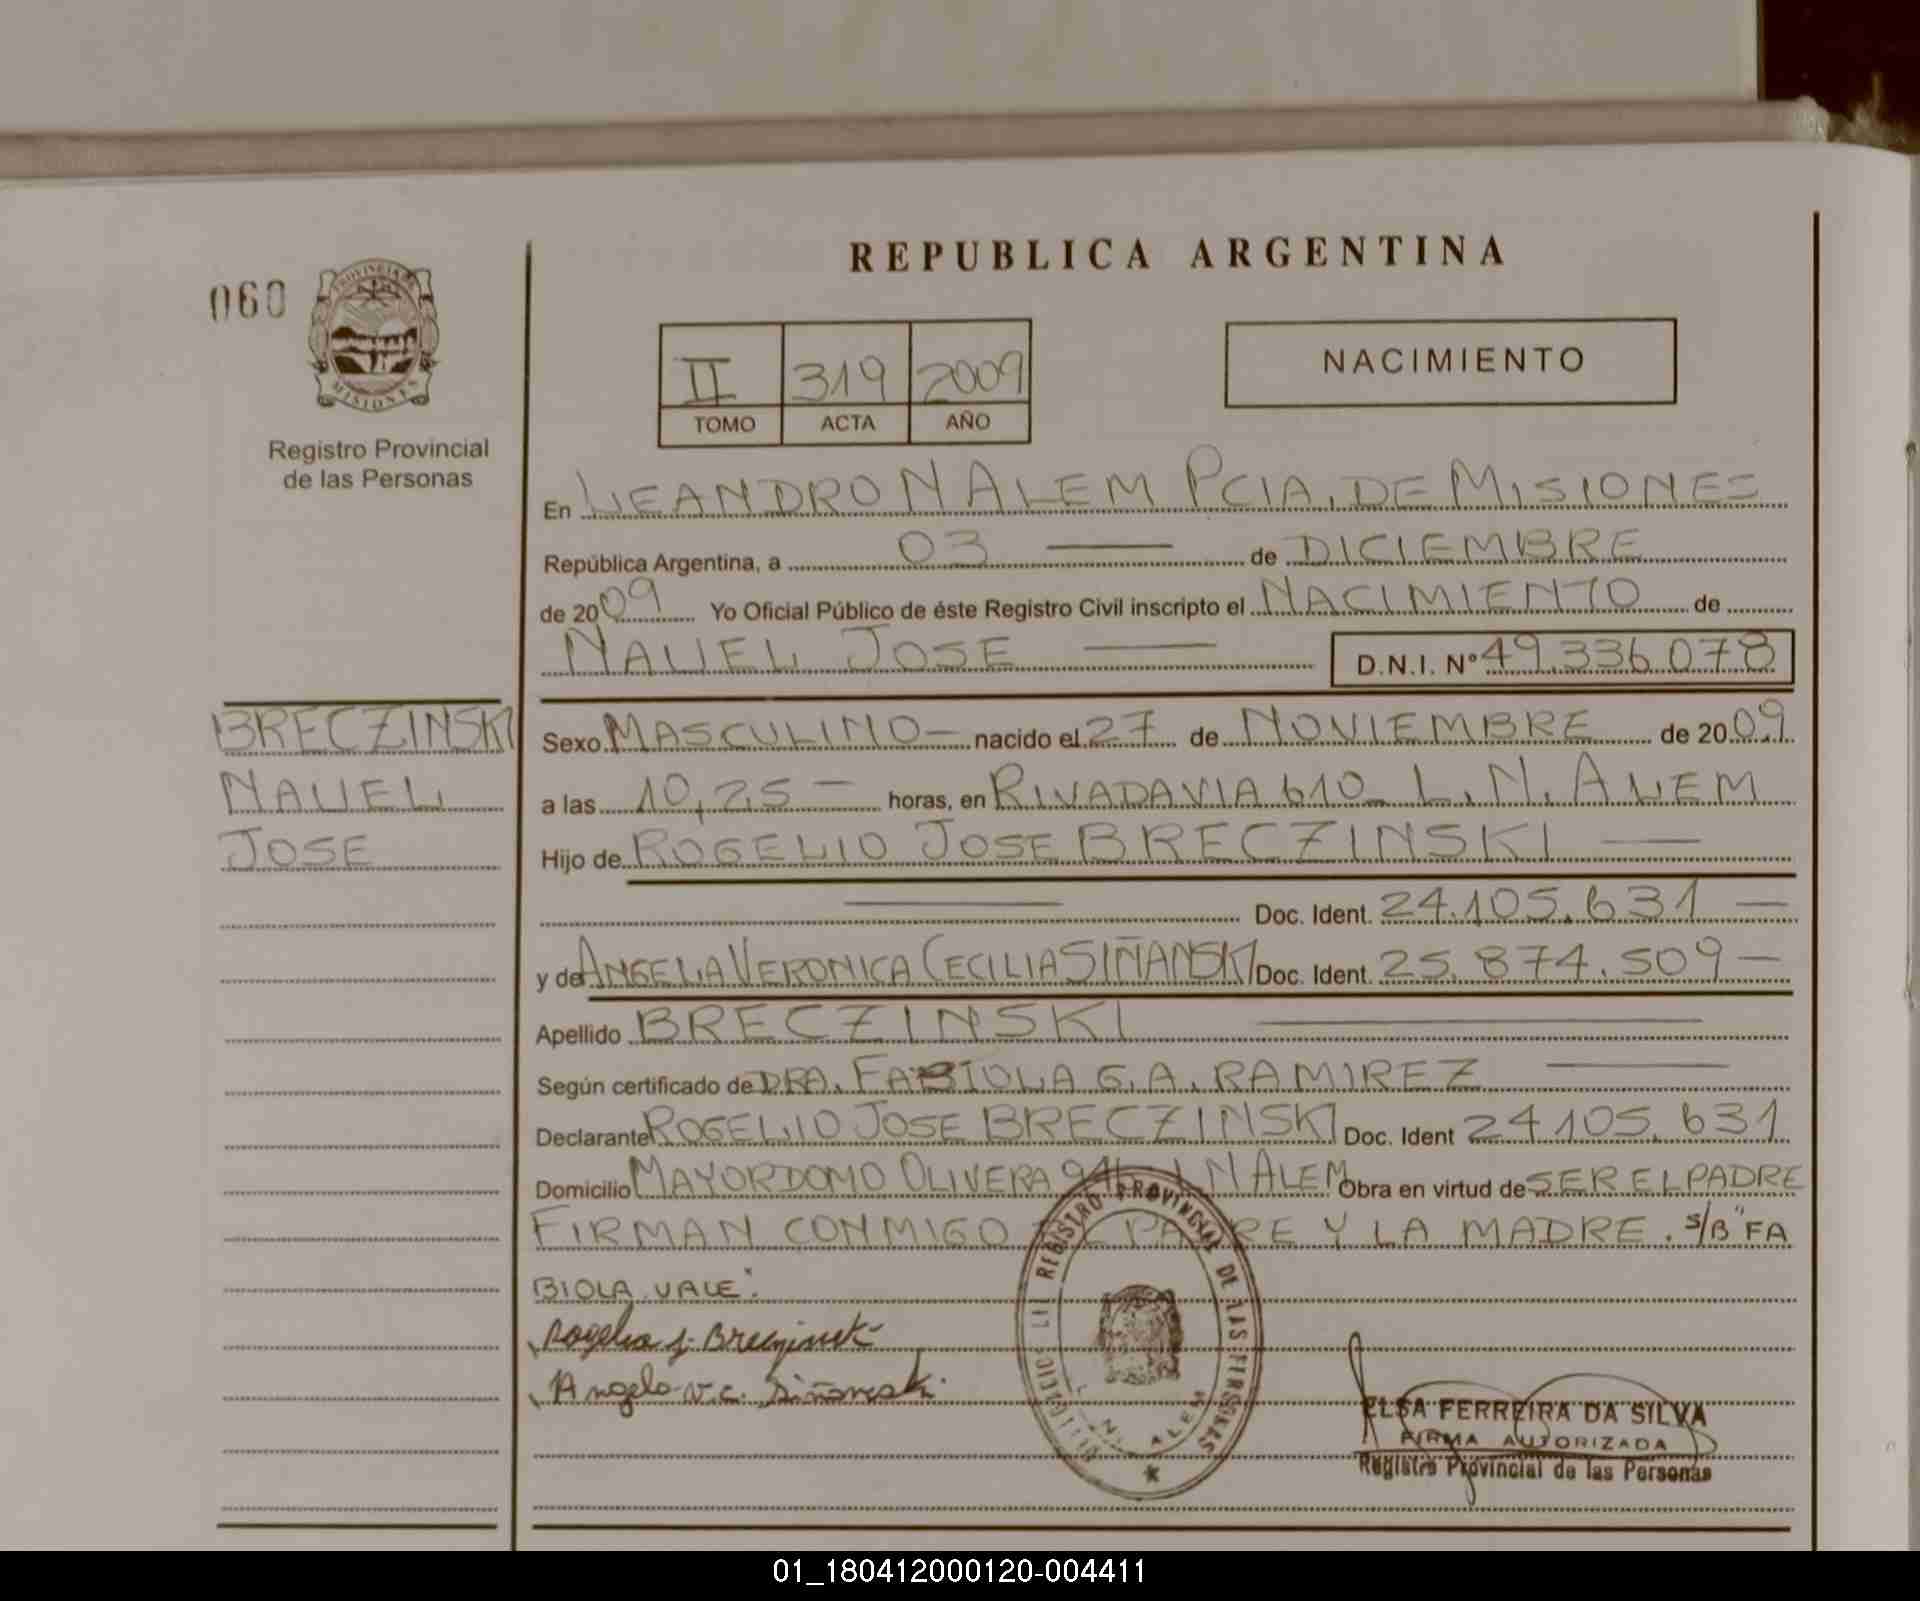 REPUBLICA ARGENTINA
060
PROVINCIA DE
MISIONES
Registro Provincial
de las Personas
II 319 2009
TOMO ACTA AÑO
NACIMIENTO
En LEANDRO N ALEM PCIA. DE MISIONES
República Argentina, a 03 — de DICIEMBRE
de 2009 Yo Oficial Público de éste Registro Civil inscripto el NACIMIENTO de
NAUEL JOSE — D.N.I. Nº 49.336.078
BRECZINSKI
NAUEL
JOSE
Sexo MASCULINO — nacido el 27 de NOVIEMBRE de 2009
a las 10,25 — horas, en RIVADAVIA 610 L. N. ALEM
Hijo de ROGELIO JOSE BRECZINSKI —
— Doc. Ident. 24.105.631 —
y de ANGELA VERONICA CECILIA SIÑANSKI Doc. Ident. 25.874.509 —
Apellido BRECZINSKI —
Según certificado de DRA. FABIOLA G. A. RAMIREZ —
Declarante ROGELIO JOSE BRECZINSKI Doc. Ident 24.105.631
Domicilio MAYORDOMO OLIVERA L N ALEM Obra en virtud de SER EL PADRE
FIRMAN CONMIGO PADRE Y LA MADRE. S/B "FA
BIOLA. VALE".
Rogelio J. Breczinski
Angela V. C. Siñanski
REGISTRO PROVINCIAL DE LAS PERSONAS
L. N. ALEM
ELSA FERREIRA DA SILVA
FIRMA AUTORIZADA
Registro Provincial de las Personas
01_180412000120-004411